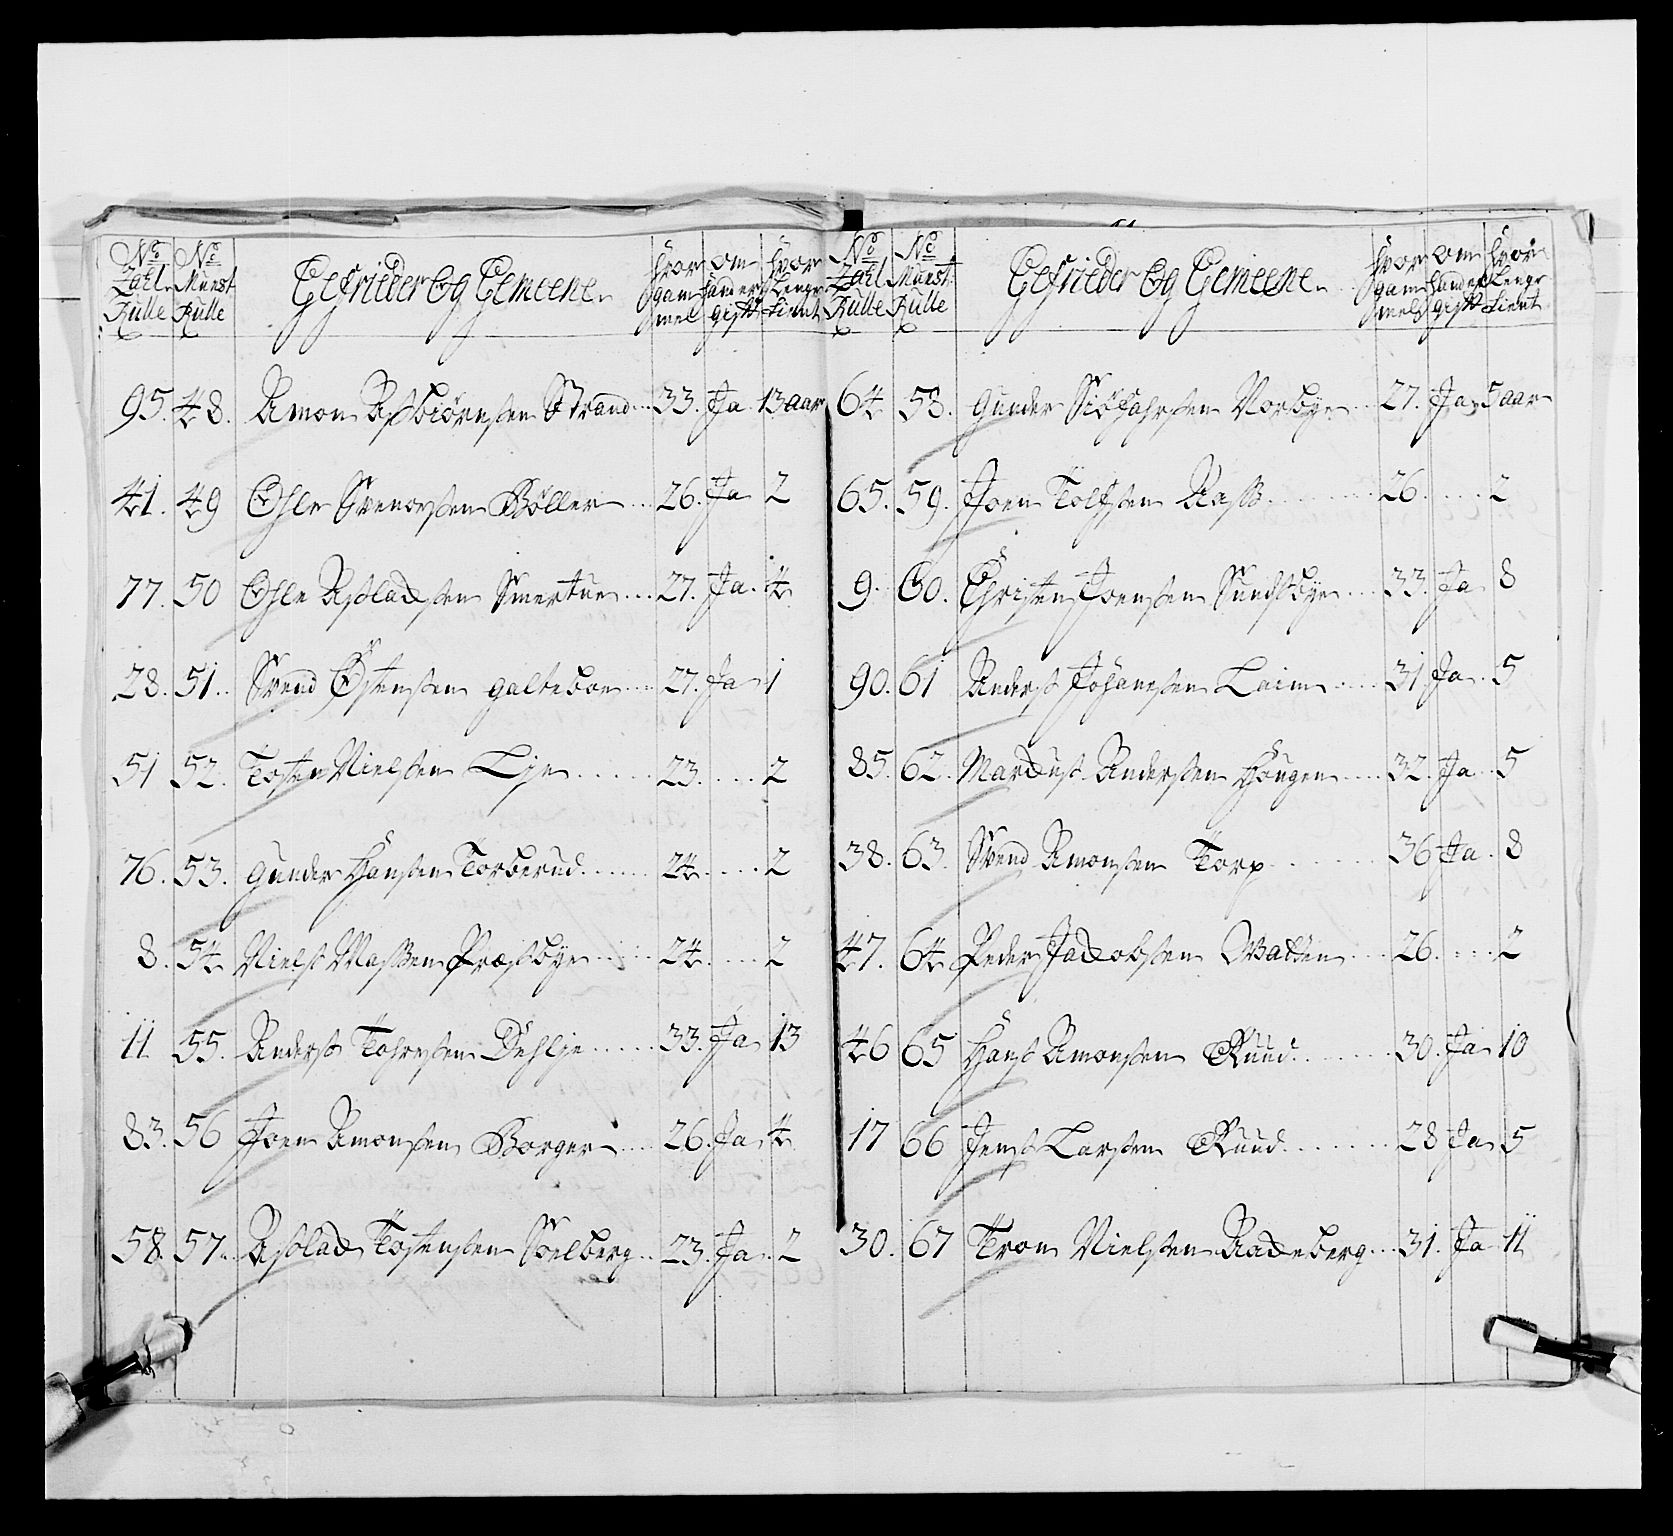 No Zahl Rulle | No Munst Rulle | Gefrieder Og Gemeene | Hvor gam mel | om hand er gift | hvor Lenge tient
95. 48. Amon Asbiörnsen Strand 33. Ja 13 aar
41. 49 Ohle Svensen Böller 26. Ja 2
77. 50 Ohle Aslacksen Smertue 27. Ja. 4
28. 51. Svend Östensen galteboe 27. Ja 1
51 52. Tosten Nielsen Lye 23. 2
76. 53. gunder Hansen Torberud 24. 2
8. 54 Niels Massen Præstbye 24. 2
11. 55. Anders Tohresen Dehlje 33. Ja 13
83. 56 Joen Amonsen Borger 26. Ja 4
58. 57. Aslack Tostensen Soelberg 23. Ja. 2
No Zahl Rulle | No Munst. Rulle | Gefrieder Og Gemeene | Hvor gam mel | om hand er gift | Hvor Lenge tient
64 58. gunder Norbye 27. Ja 5 aar
65. 59. Joen Tolfsen Aass 26. 2
9. 60. Christen Joensen Sundsbye 33. Ja 8
90. 61 Anders Johansen Laim 31 Ja. 5
85. 62. Marcus Andersen Hougen 32. Ja. 5
38. 63. Svend Amonsen Torp 36 Ja. 8
47. 64 Peder Jacobsen Wacken 26. 2
46 65 Hans Amonsen Ruud 30. Ja 10
17 66 Jens Larsen Ruud 28 Ja 5
30. 67 Tron Nielsen Rackeberg 31. Ja 11